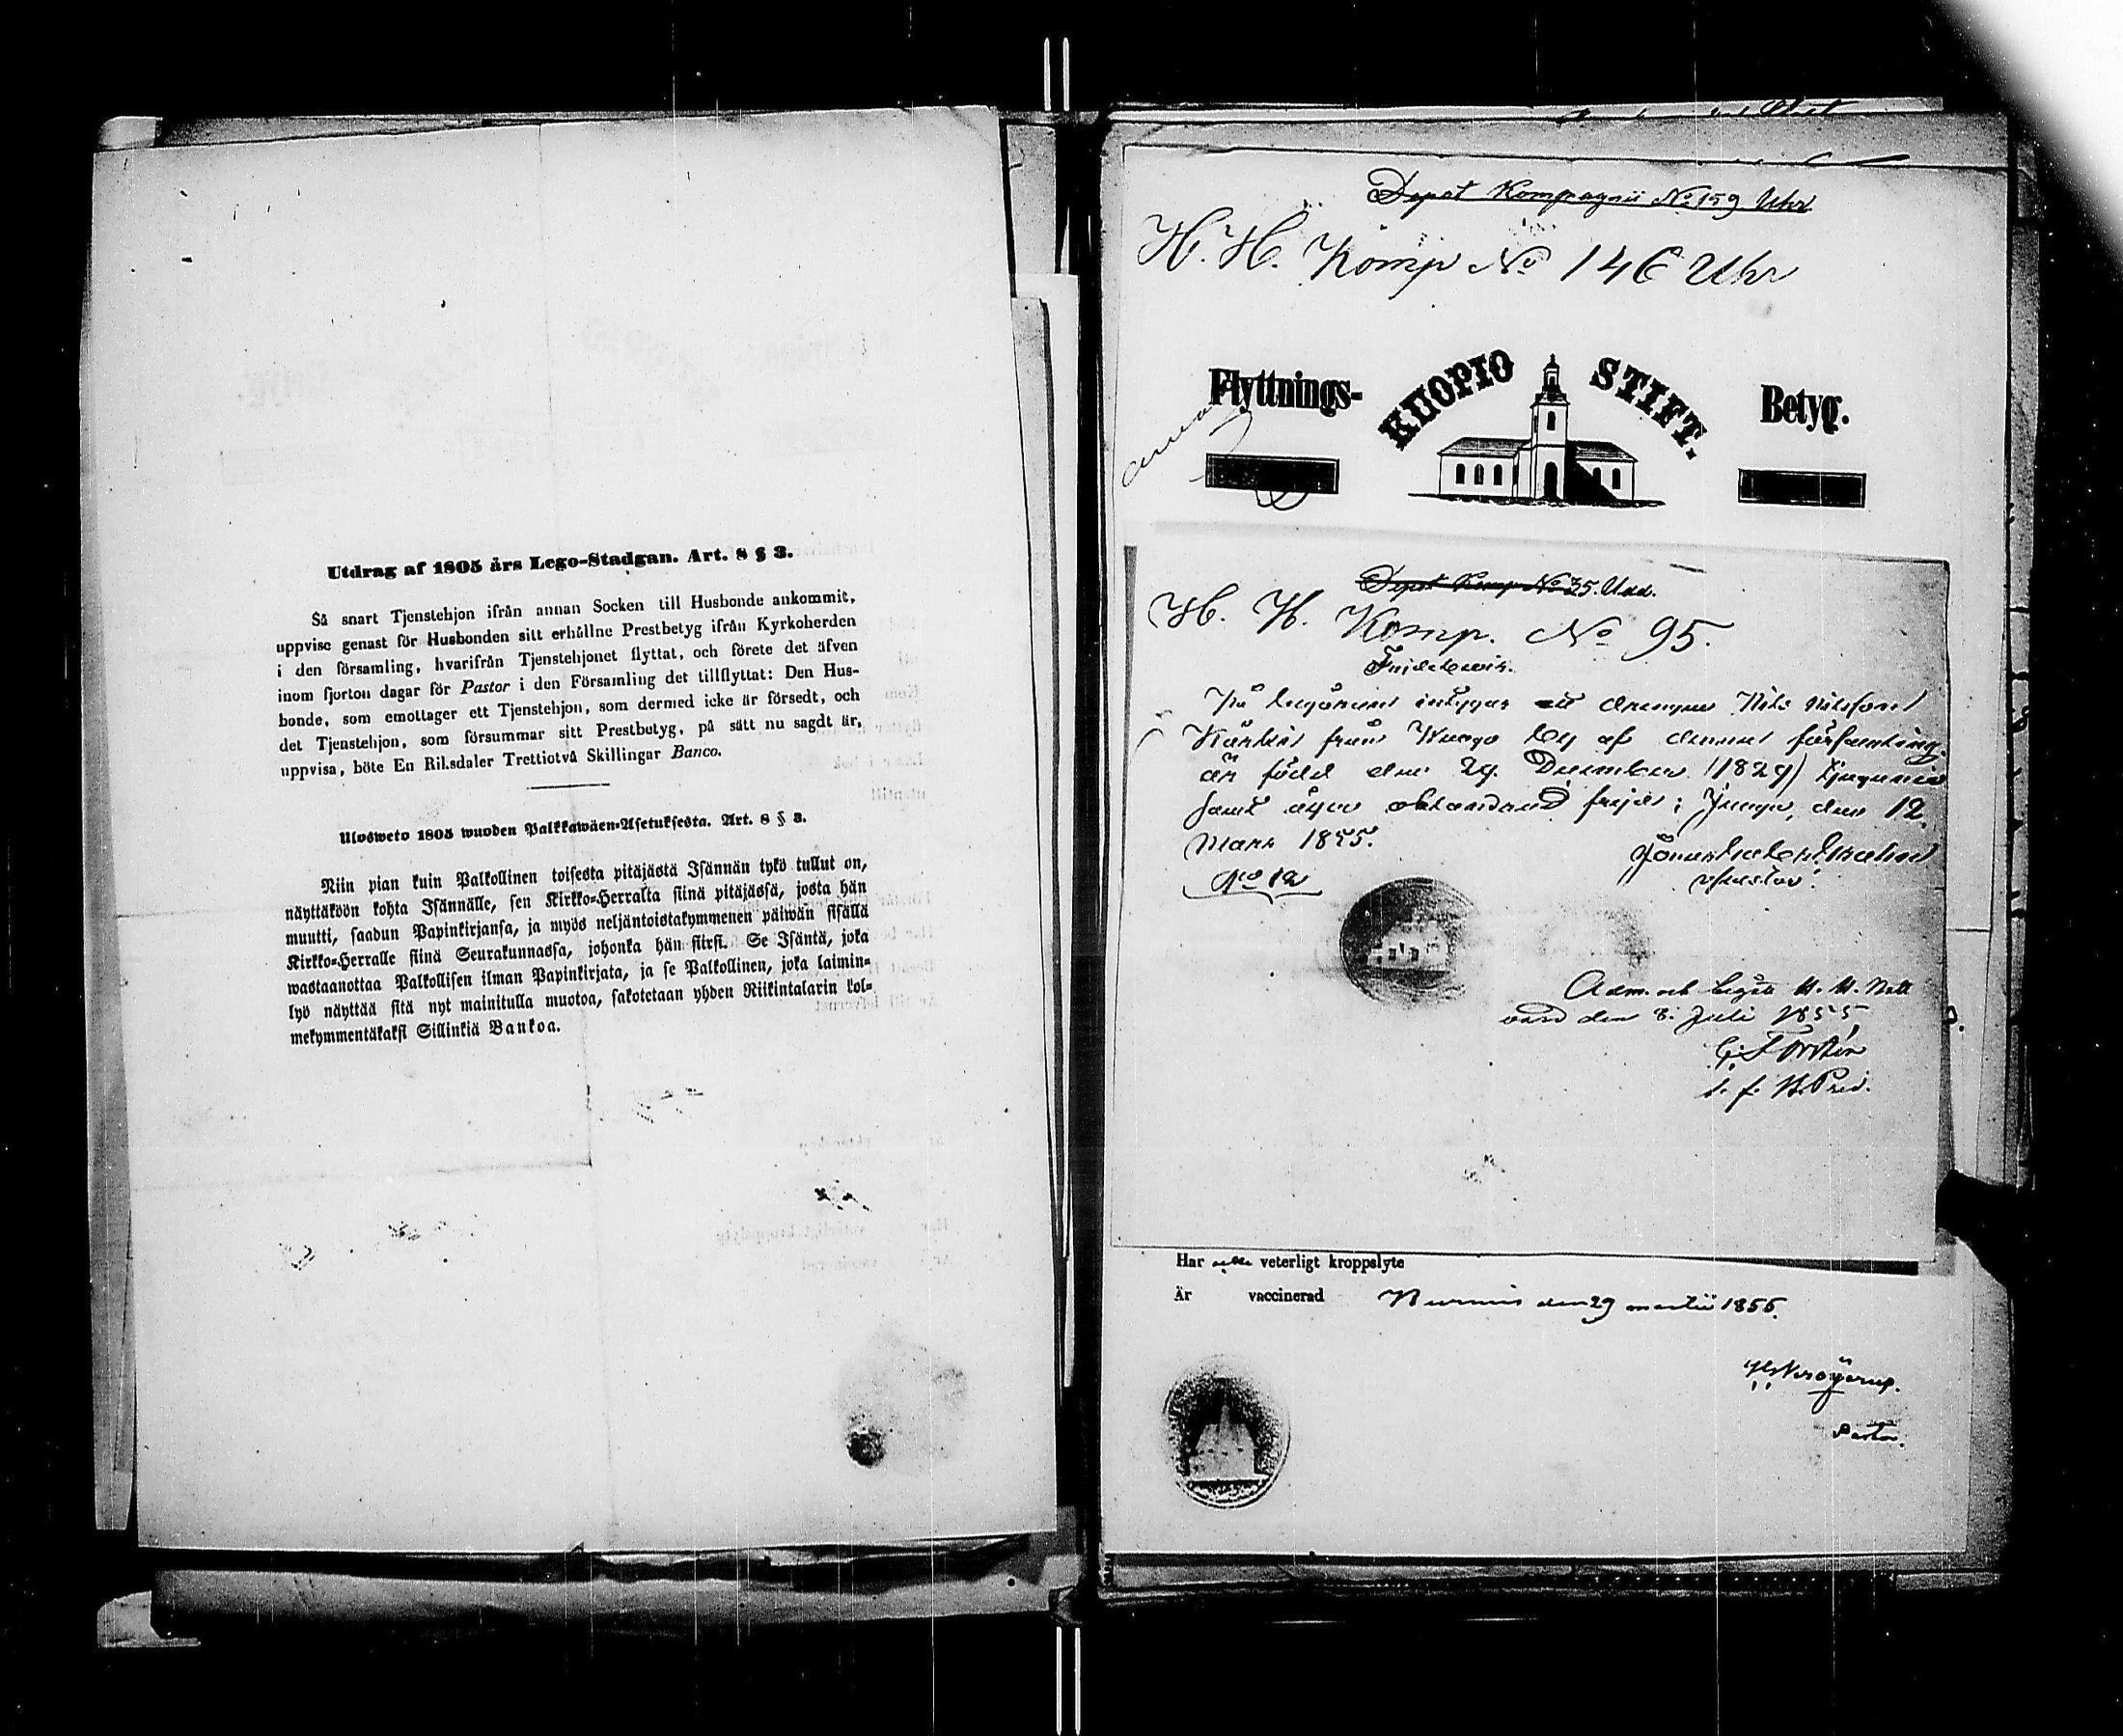 Utdrag af 1805 års Lego-Stadgan. Art. 8 § 3.
Så snart Tjenstehjon ifrån annan Socken till Husbonde ankommit,
uppvise genast för Husbonden sitt erhållne Prestbetyg ifrån Kyrkoherden
i den församling, hvarifrån Tjenstehjonet flyttat, och förete det äfven
inom fjorton dagar för Pastor i den Församling det tillflyttat: Den Hus-
bonde, som emottager ett Tjenstehjon, som dermed icke är försedt, och
det Tjenstehjon, som försummar sitt Prestbetyg, på sätt nu sagdt är,
uppvisa, böte En Riksdaler Trettiotvå Skillingar Banco.
Ulosweto 1805 wuoden Palkkawäen-Asetuksesta. Art. 8 § 3.
Niin pian kuin Palkollinen toisesta pitäjästä Isännän tykö tullut on,
näyttäköön kohta Isännälle, sen Kirkko-Herralta siinä pitäjässä, josta hän
muutti, saadun Papinkirjansa, ja myös neljäntoistakymmenen päiwän sisällä
Kirkko-Herralle siinä Seurakunnassa, johonka hän siirsi. Se Isäntä, joka
wastaanottaa Palkollisen ilman Papinkirjata, ja se Palkollinen, joka laimin-
lyö näyttää sitä nyt mainitulla muotoa, sakotetaan yhden Riikintalarin kol-
mekymmentäkaksi Sillinkiä Bankoa.
Depot Kompagnii No 159 Uhr
H. H. Komp No 146 Uhr
Flyttnings- KUOPIO STIFT. Betyg.
Depot Komp No 35. Udd.
H. H. Komp. No 95.
Frejdebevis.
På begäran intygas att drengen Nils Nilsson
från by af denna församling
är född den 29. December (1829)
samt äger frejd; den 12.
Mars 1855.
No 12
Pastor.
Adm. och begått H. H. Natt
vard den 8. Juli 1855
G. Forstén
Har icke veterligt kroppslyte
Är vaccinerad Nurmis den 29 martii 1855.
Pastor.